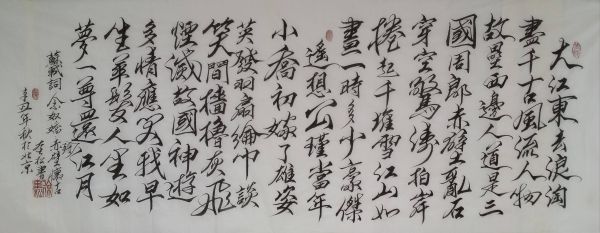 大江東去浪淘
盡千古風流人物
故壘西邊人道是三
國周郎赤壁亂石
穿空驚濤拍岸
捲起千堆雪江山如
畫一時多少豪傑
遙想公瑾當年
小喬初嫁了雄姿
英發羽扇綸巾談
笑間檣櫓灰飛
煙滅故國神遊
多情應笑我早
生華髮人生如
夢一尊還江月
酹
蘇軾詞念奴嬌赤壁懷古
辛丑年秋於北京